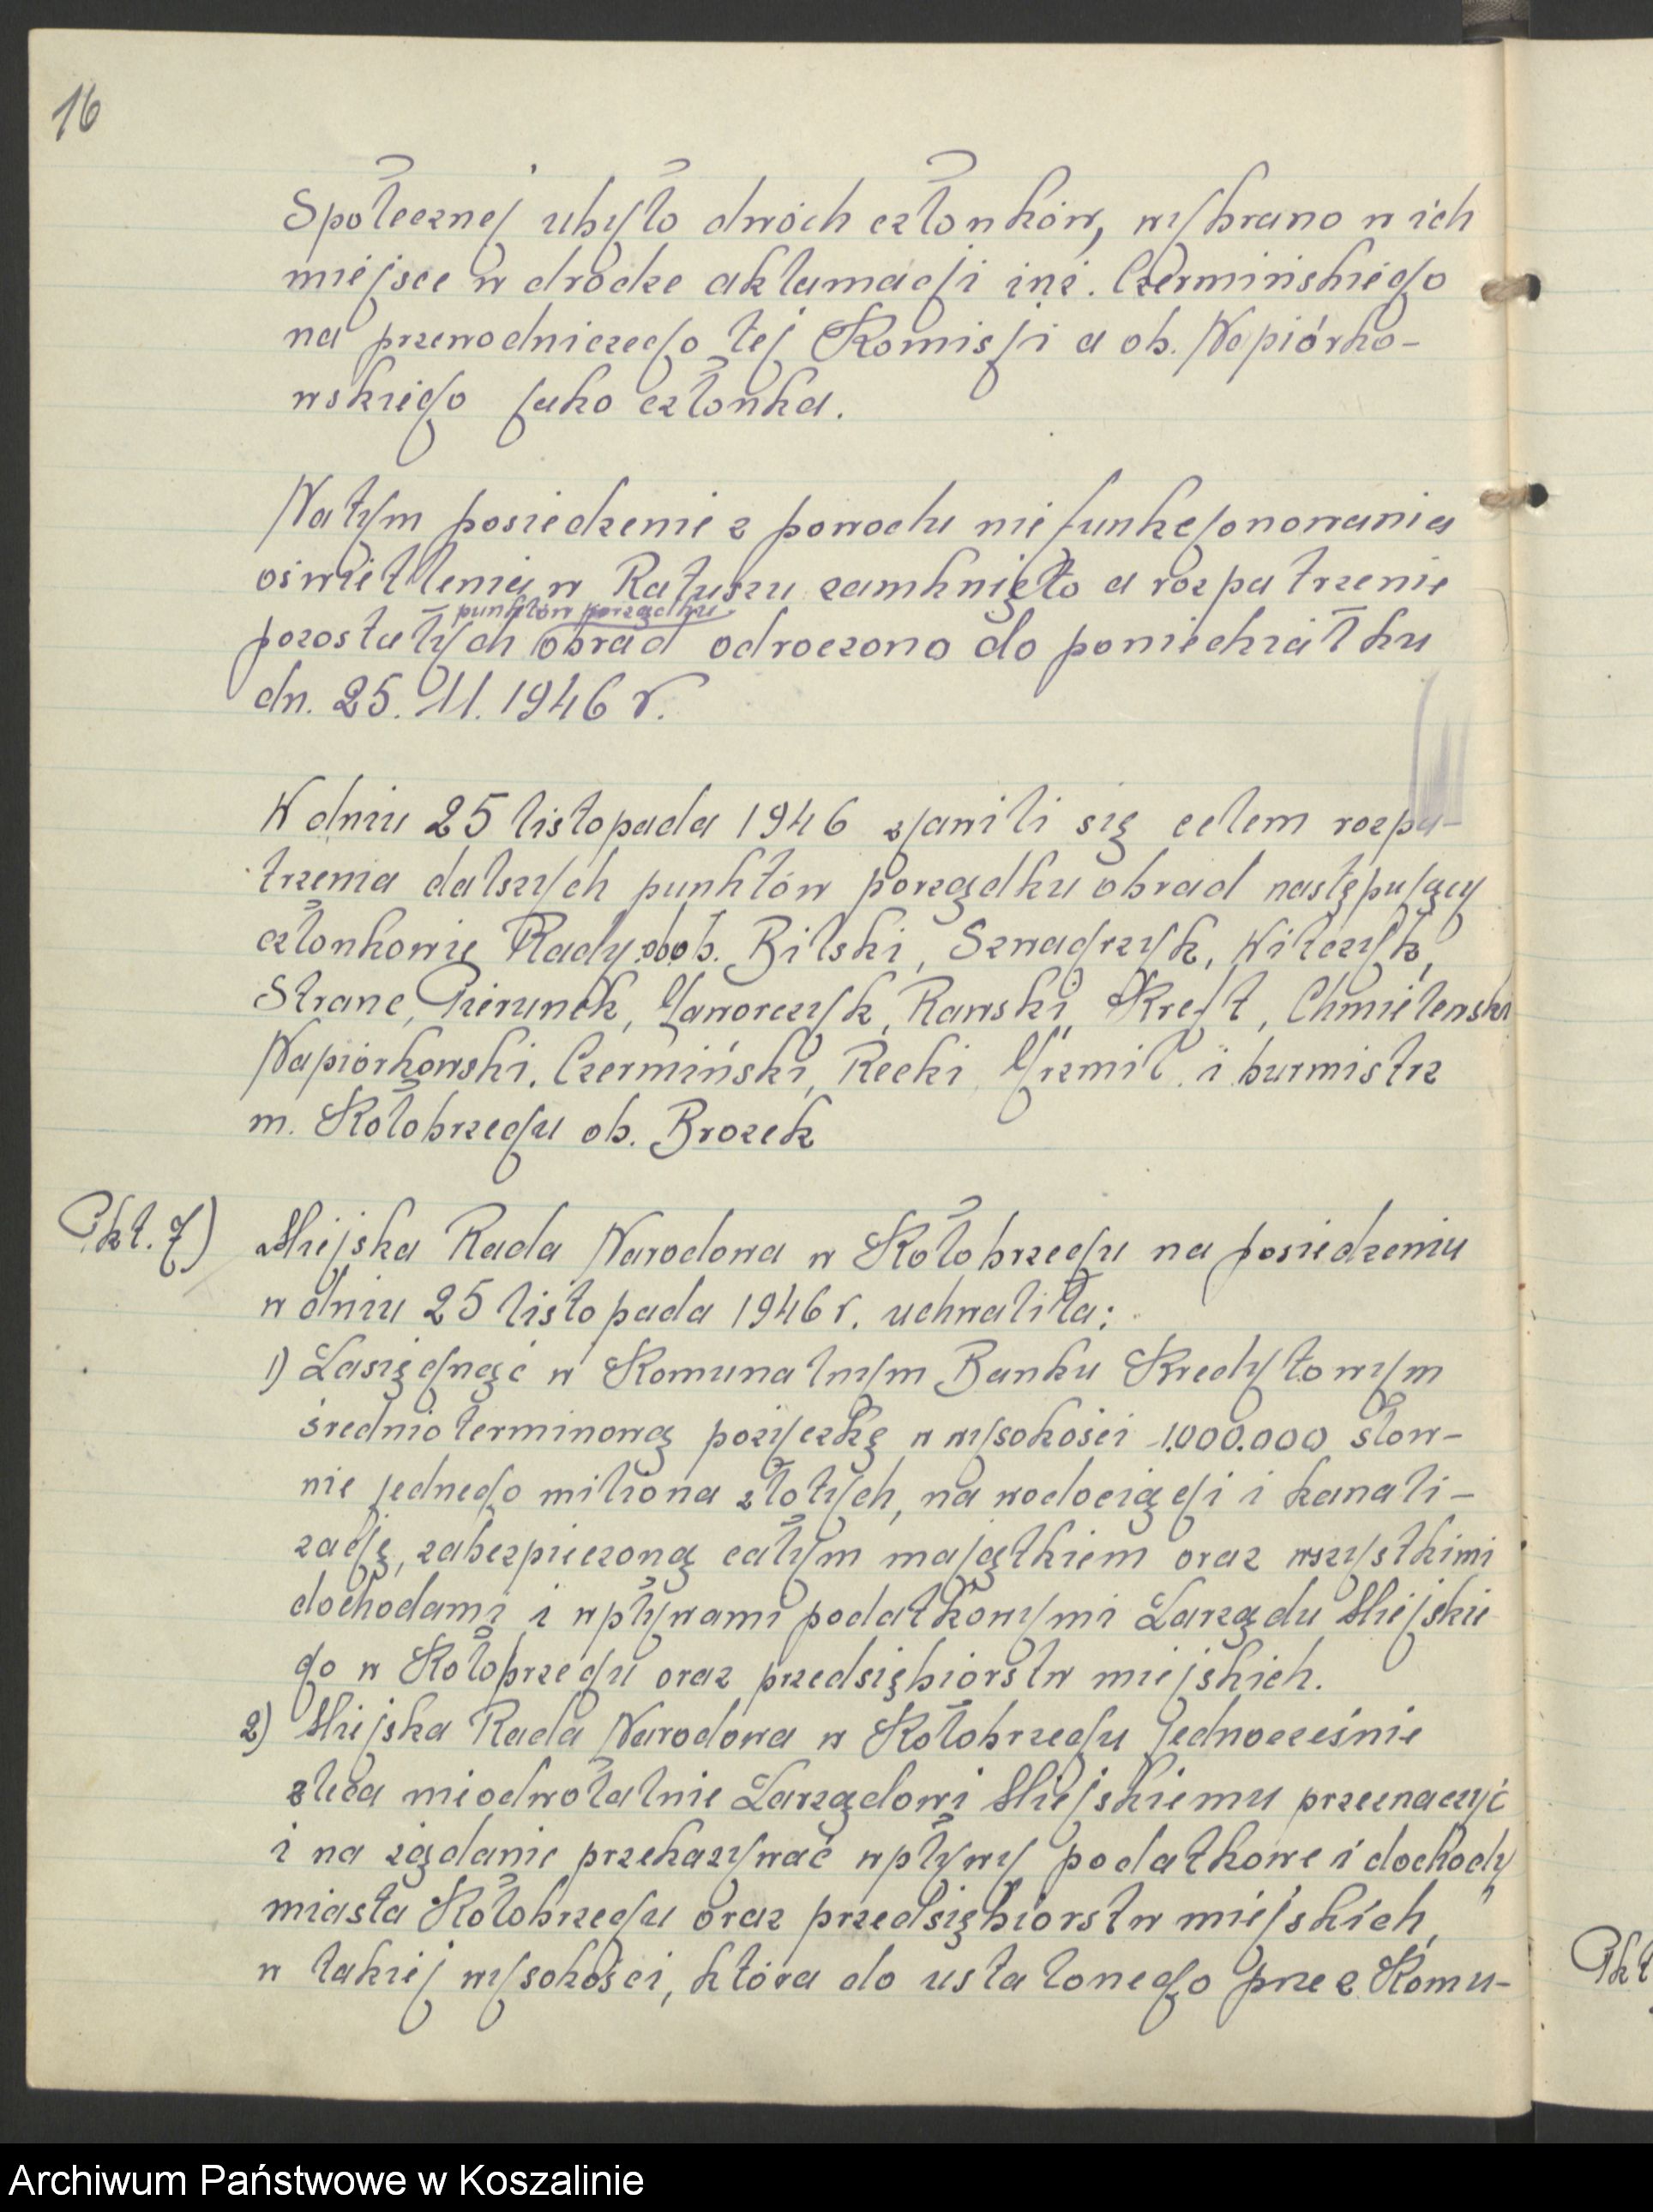 16
Społecznej ubyło dwóch członków, wybrano w ich
miejsce w drodze aklamacji inż. Czermińskiego
na przewodniczego tej Komisji a ob. Napiórko-
wskiego jako członka.
Na tym posiedzenie z powodu nie funkcjonowania
oświetlenia w Ratuszu zamknięto a rozpatrzenie
punktów porządku
pozostałych obrad odroczono do poniedziałku
dn. 25. 11. 1946 r.
W dniu 25 listopada 1946 zjawili się celem rozpa-
trzenia dalszych punktów porządku obrad następujący
członkowie Rady: obob. Bilski, Szwagrzyk, Wilczyk,
Stranc, Pierunek, Jaworczyk, Rawski, Kreft, Chmielewski
Napiórkowski, Czermiński, Recki, Jrzmił i burmistrz
m. Kołobrzegu ob. Brozek
Pkt. 7) Miejska Rada Narodowa w Kołobrzegu na posiedzeniu
w dniu 25 listopada 1946 r. uchwaliła:
1) Zasięgnąć w Komunalnym Banku Kredytowym
średnioterminową pożyczkę w wysokości 1.000.000 słow-
nie jednego miliona złotych, na wodociągi i kanali-
zację, zabezpieczoną całym majątkiem oraz wszystkimi
dochodami i wpływami podatkowymi Zarządu Miejskie
go w Kołobrzegu oraz przedsiębiorstw miejskich.
2) Miejska Rada Narodowa w Kołobrzegu jednocześnie
zleca nieodwołalnie Zarządowi Miejskiemu przeznaczyć
i na żądanie przekazywać wpływy podatkowe i dochody
miasta Kołobrzegu oraz przedsiębiorstw miejskich,
w takiej wysokości, która do ustalonego przez Komu-
Pkt
Archiwum Państwowe w Koszalinie